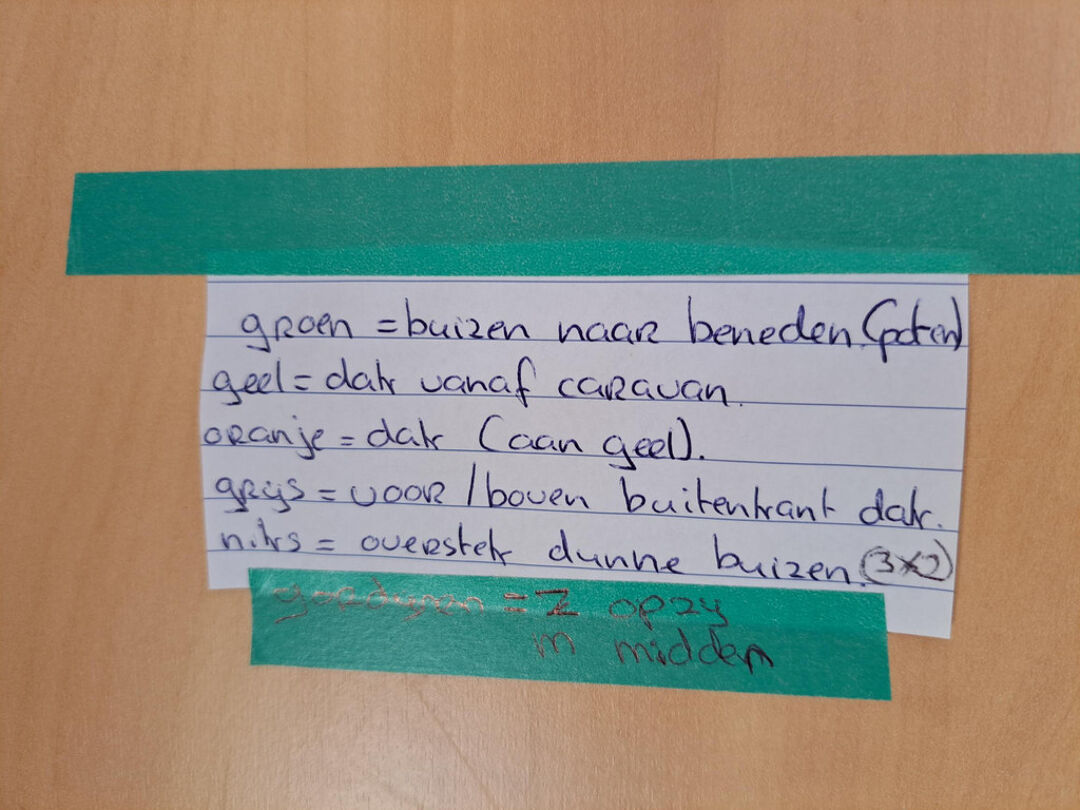 groen = buizen naar beneden (poten)
geel = dak vanaf caravan.
oranje = dak (aan geel).
grijs = voor / boven buitenkant dak.
niks = overstek dunne buizen. (3x2)
gordijnen = Z opzij
m midden